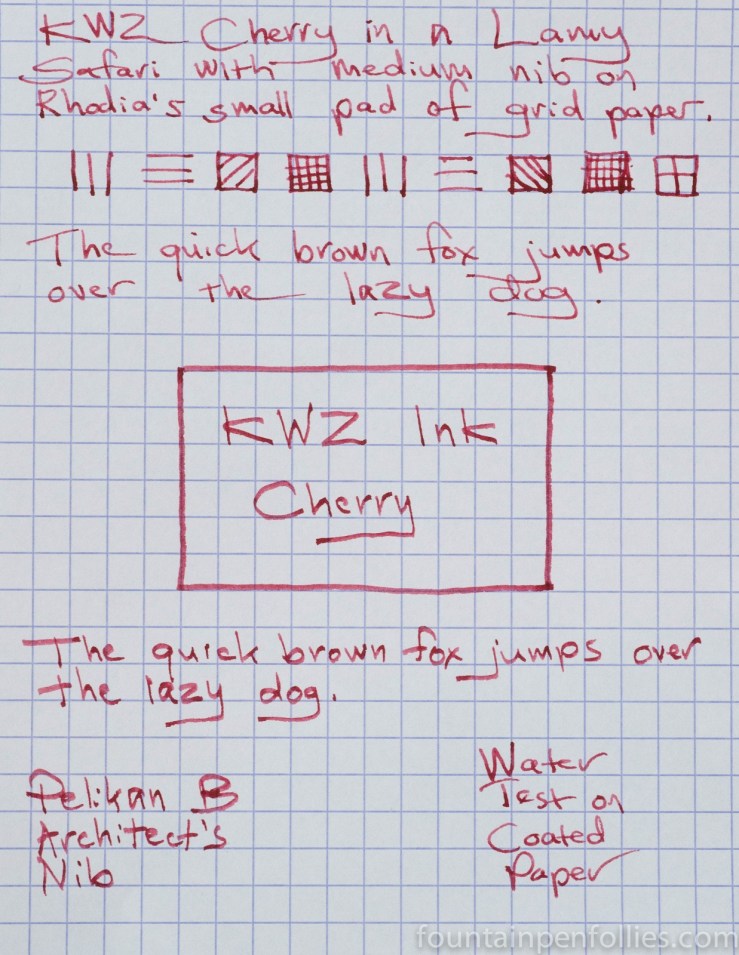 KWZ Cherry in a Lamy
Safari with medium nib on
Rhodia's small pad of grid paper.
The quick brown fox jumps
over the lazy dog.
KWZ Ink
Cherry
The quick brown fox jumps over
the lazy dog.
Pelikan B
Architect's
Nib
Water
Test on
Coated
Paper
fountainpenfollies.com